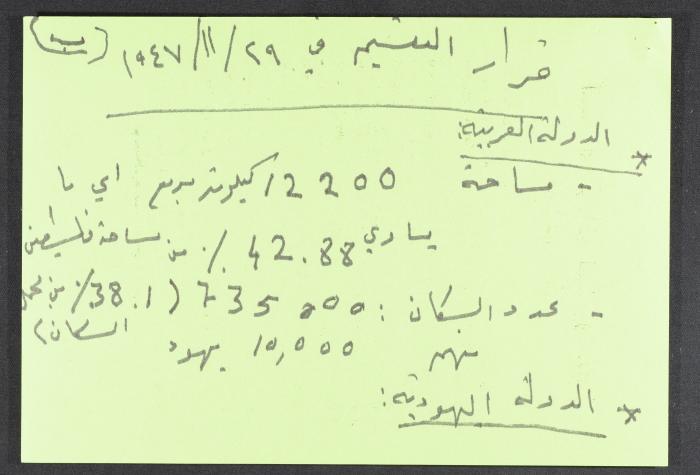 قرار التقسيم في ٢٩/١١/١٩٤٧ (ب)
* الدولة العربية:
- مساحة 12200 كيلومتر مربع اي ما
يساوي 42.88 ٪ من مساحة فلسطين
- عدد السكان : 735000 (38.1٪ من مجمل
السكان)
منهم 10,000 يهود
* الدولة اليهودية: